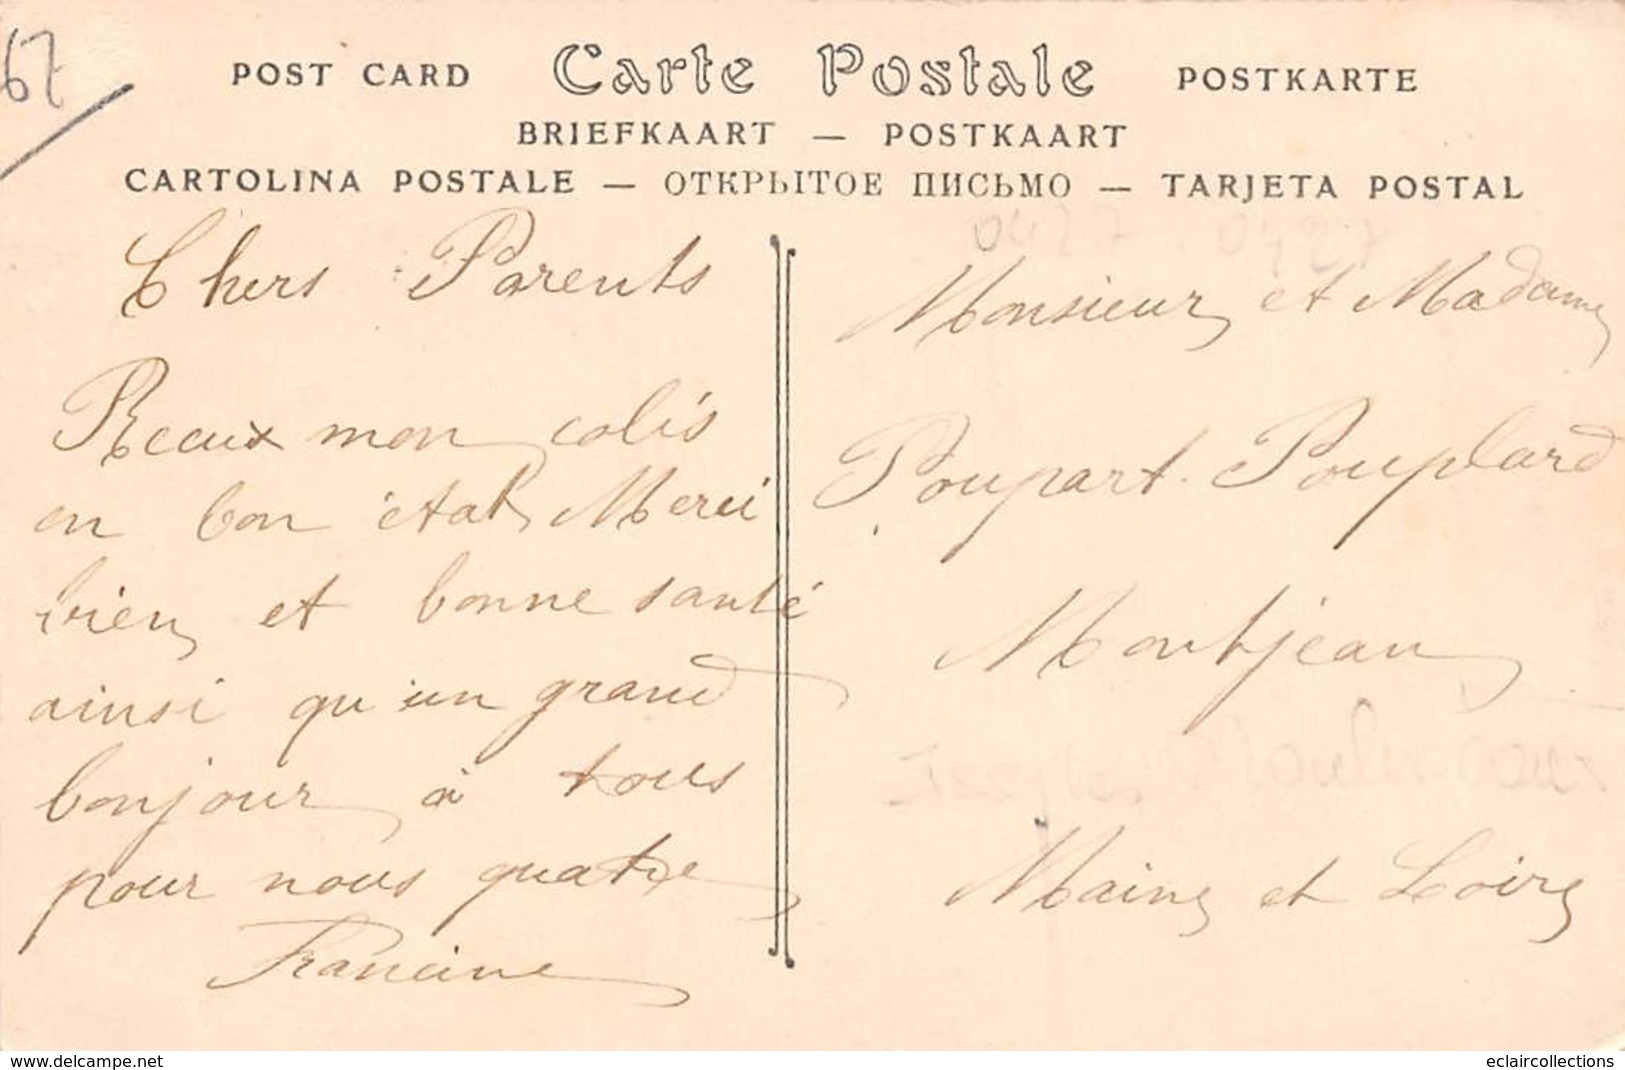 67
POST CARD Carte Postale POSTKARTE
BRIEFKAART — POSTKAART
CARTOLINA POSTALE — ОТКРЫТОЕ ПИСЬМО — TARJETA POSTAL
Chers Parents
Reaux mon colis
en bon état Merci
bien et bonne santé
ainsi qu'un grand
bonjour à tous
pour nous quatre
Francine
0427 0427
Monsieur et Madame
Poupart. Pouplard
Montjean
Maine et Loire
www.delcampe.net
eclaircollections